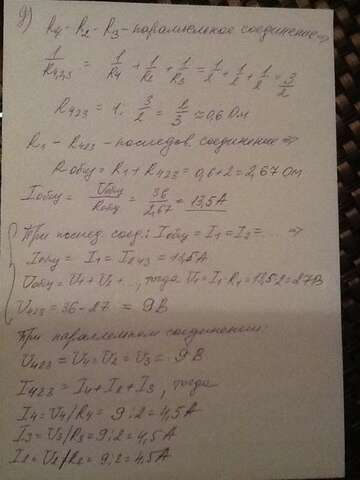 д) R4 - R2 - R3 - параллельное соединение ⇒
1/R4,2,3 = 1/R4 + 1/R2 + 1/R3 = 1/2 + 1/2 + 1/2 = 3/2
R423 = 1 : 3/2 = 2/3 ≈ 0,6 Ом
R1 - R423 - последов. соединение ⇒
Rобщ = R1 + R423 = 0,6+2 = 2,67 Ом
Iобщ = Uобщ/Rобщ = 36/2,67 = 13,5 А
При послед. соед.: Iобщ = I1 = I2 = ... ⇒
Iобщ = I1 = I423 = 13,5 А
Uобщ = U1 + U2 + ..., тогда U1 = I1·R1 = 13,5·2 = 27В
U423 = 36 - 27 = 9В
При параллельном соединении:
U423 = U4 = U2 = U3 = 9В
I423 = I4 + I2 + I3, тогда
I4 = U4/R4 = 9:2 = 4,5А
I3 = U3/R3 = 9:2 = 4,5А
I2 = U2/R2 = 9:2 = 4,5А